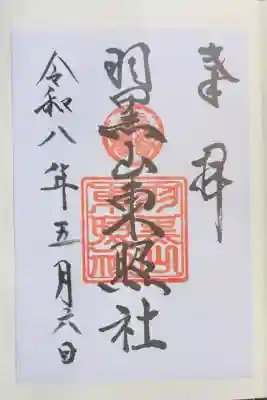 奉拝
羽黒山東照社
令和八年五月六日